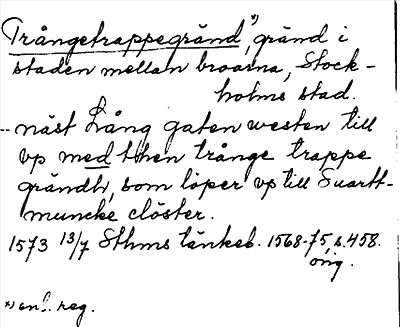 Trångetrappegränd,*) gränd i
staden mellan broarna, Stock-
holms stad.
-- näst Lång gaten westen till
vp med then trånge trappe
grändh, som löper vp till Suartt-
muncke clöster.
1573 13/7 Sthms tänkeb. 1568-75, s. 458.
orig.
*) enl. reg.